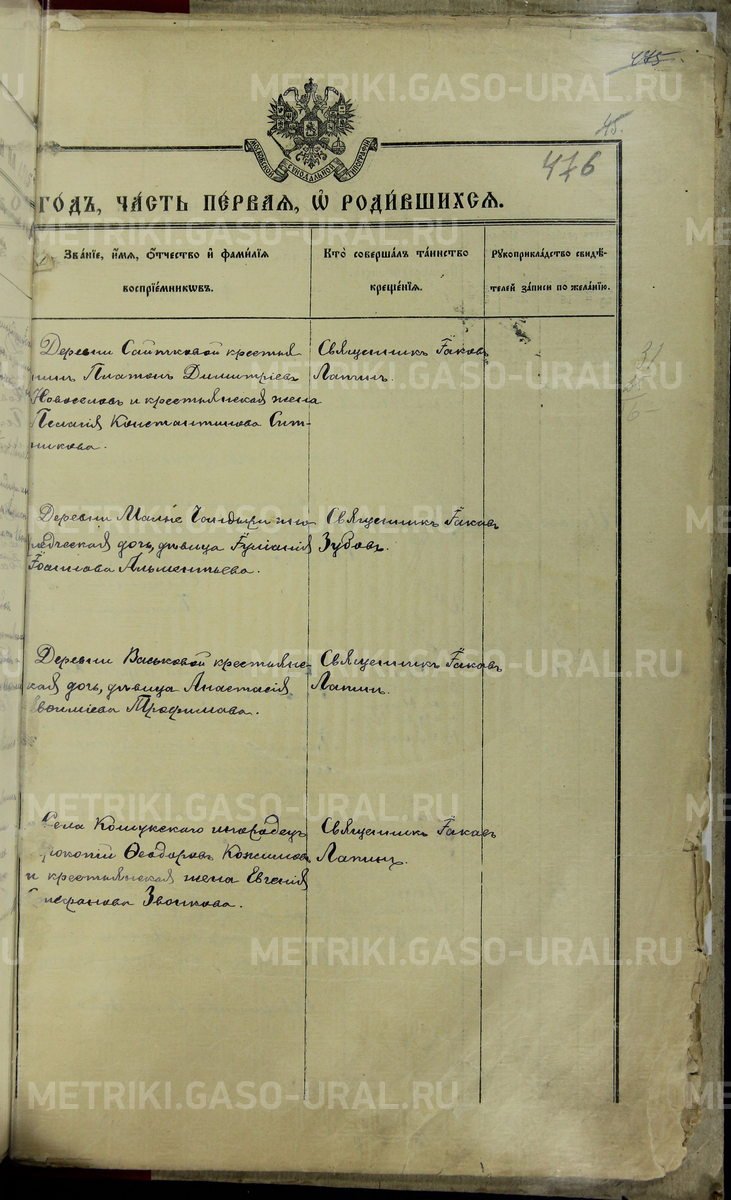 475.
45.
476
МОСКОВСКОЙ СѴНОДАЛЬНОЙ ТИПОГРАФІИ
ГО́ДЪ, ЧА́СТЬ ПЕ́РВАЯ, Ѡ҆ РОДИ́ВШИХСЯ.
Зва́нїе, и҆́мя, ѻ҆́тчество и҆ фами́лїя воспрїе́мникѡвъ.
Кто̀ соверша́лъ та́инство креще́нїя.
Рукоприкла́дство свидѣ́телей за́писи по жела́нїю.
Деревни Сайтковой крестья
нинъ Платонъ Димитріевъ
Новоселовъ и крестьянская жена
Пелагія Константинова Сит-
никова.
Священникъ Іаковъ
Лапинъ.
31
6-
Деревни Малые ино
родческая дочь, дѣвица Іуліанія
Іоаннова Альментьева.
Священникъ Іаковъ
Зубовъ.
Деревни Васьковой крестьянс-
кая дочь, дѣвица Анастасія
Евфиміева Трофимова.
Священникъ Іаковъ
Лапинъ.
Села Кошукскаго инородецъ
Прокопій Ѳеодоровъ
и крестьянская жена Евгенія
Стефанова Звонкова.
Священникъ Іаковъ
Лапинъ.
METRIKI.GASO-URAL.RU